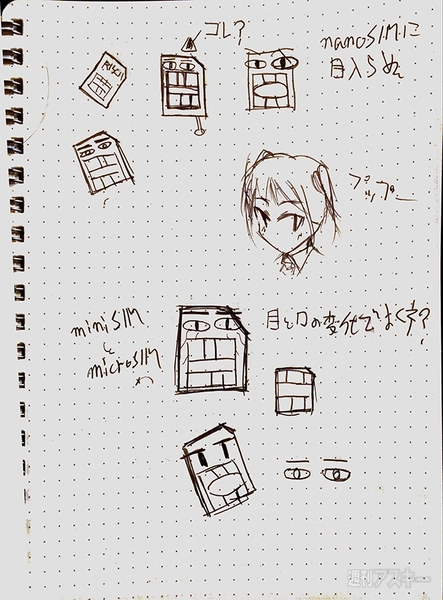 コレ?
nanoSIMに
目入らぬ
miniSIM
と
microSIM
目と口の変化でよくネ?
週刊アスキー